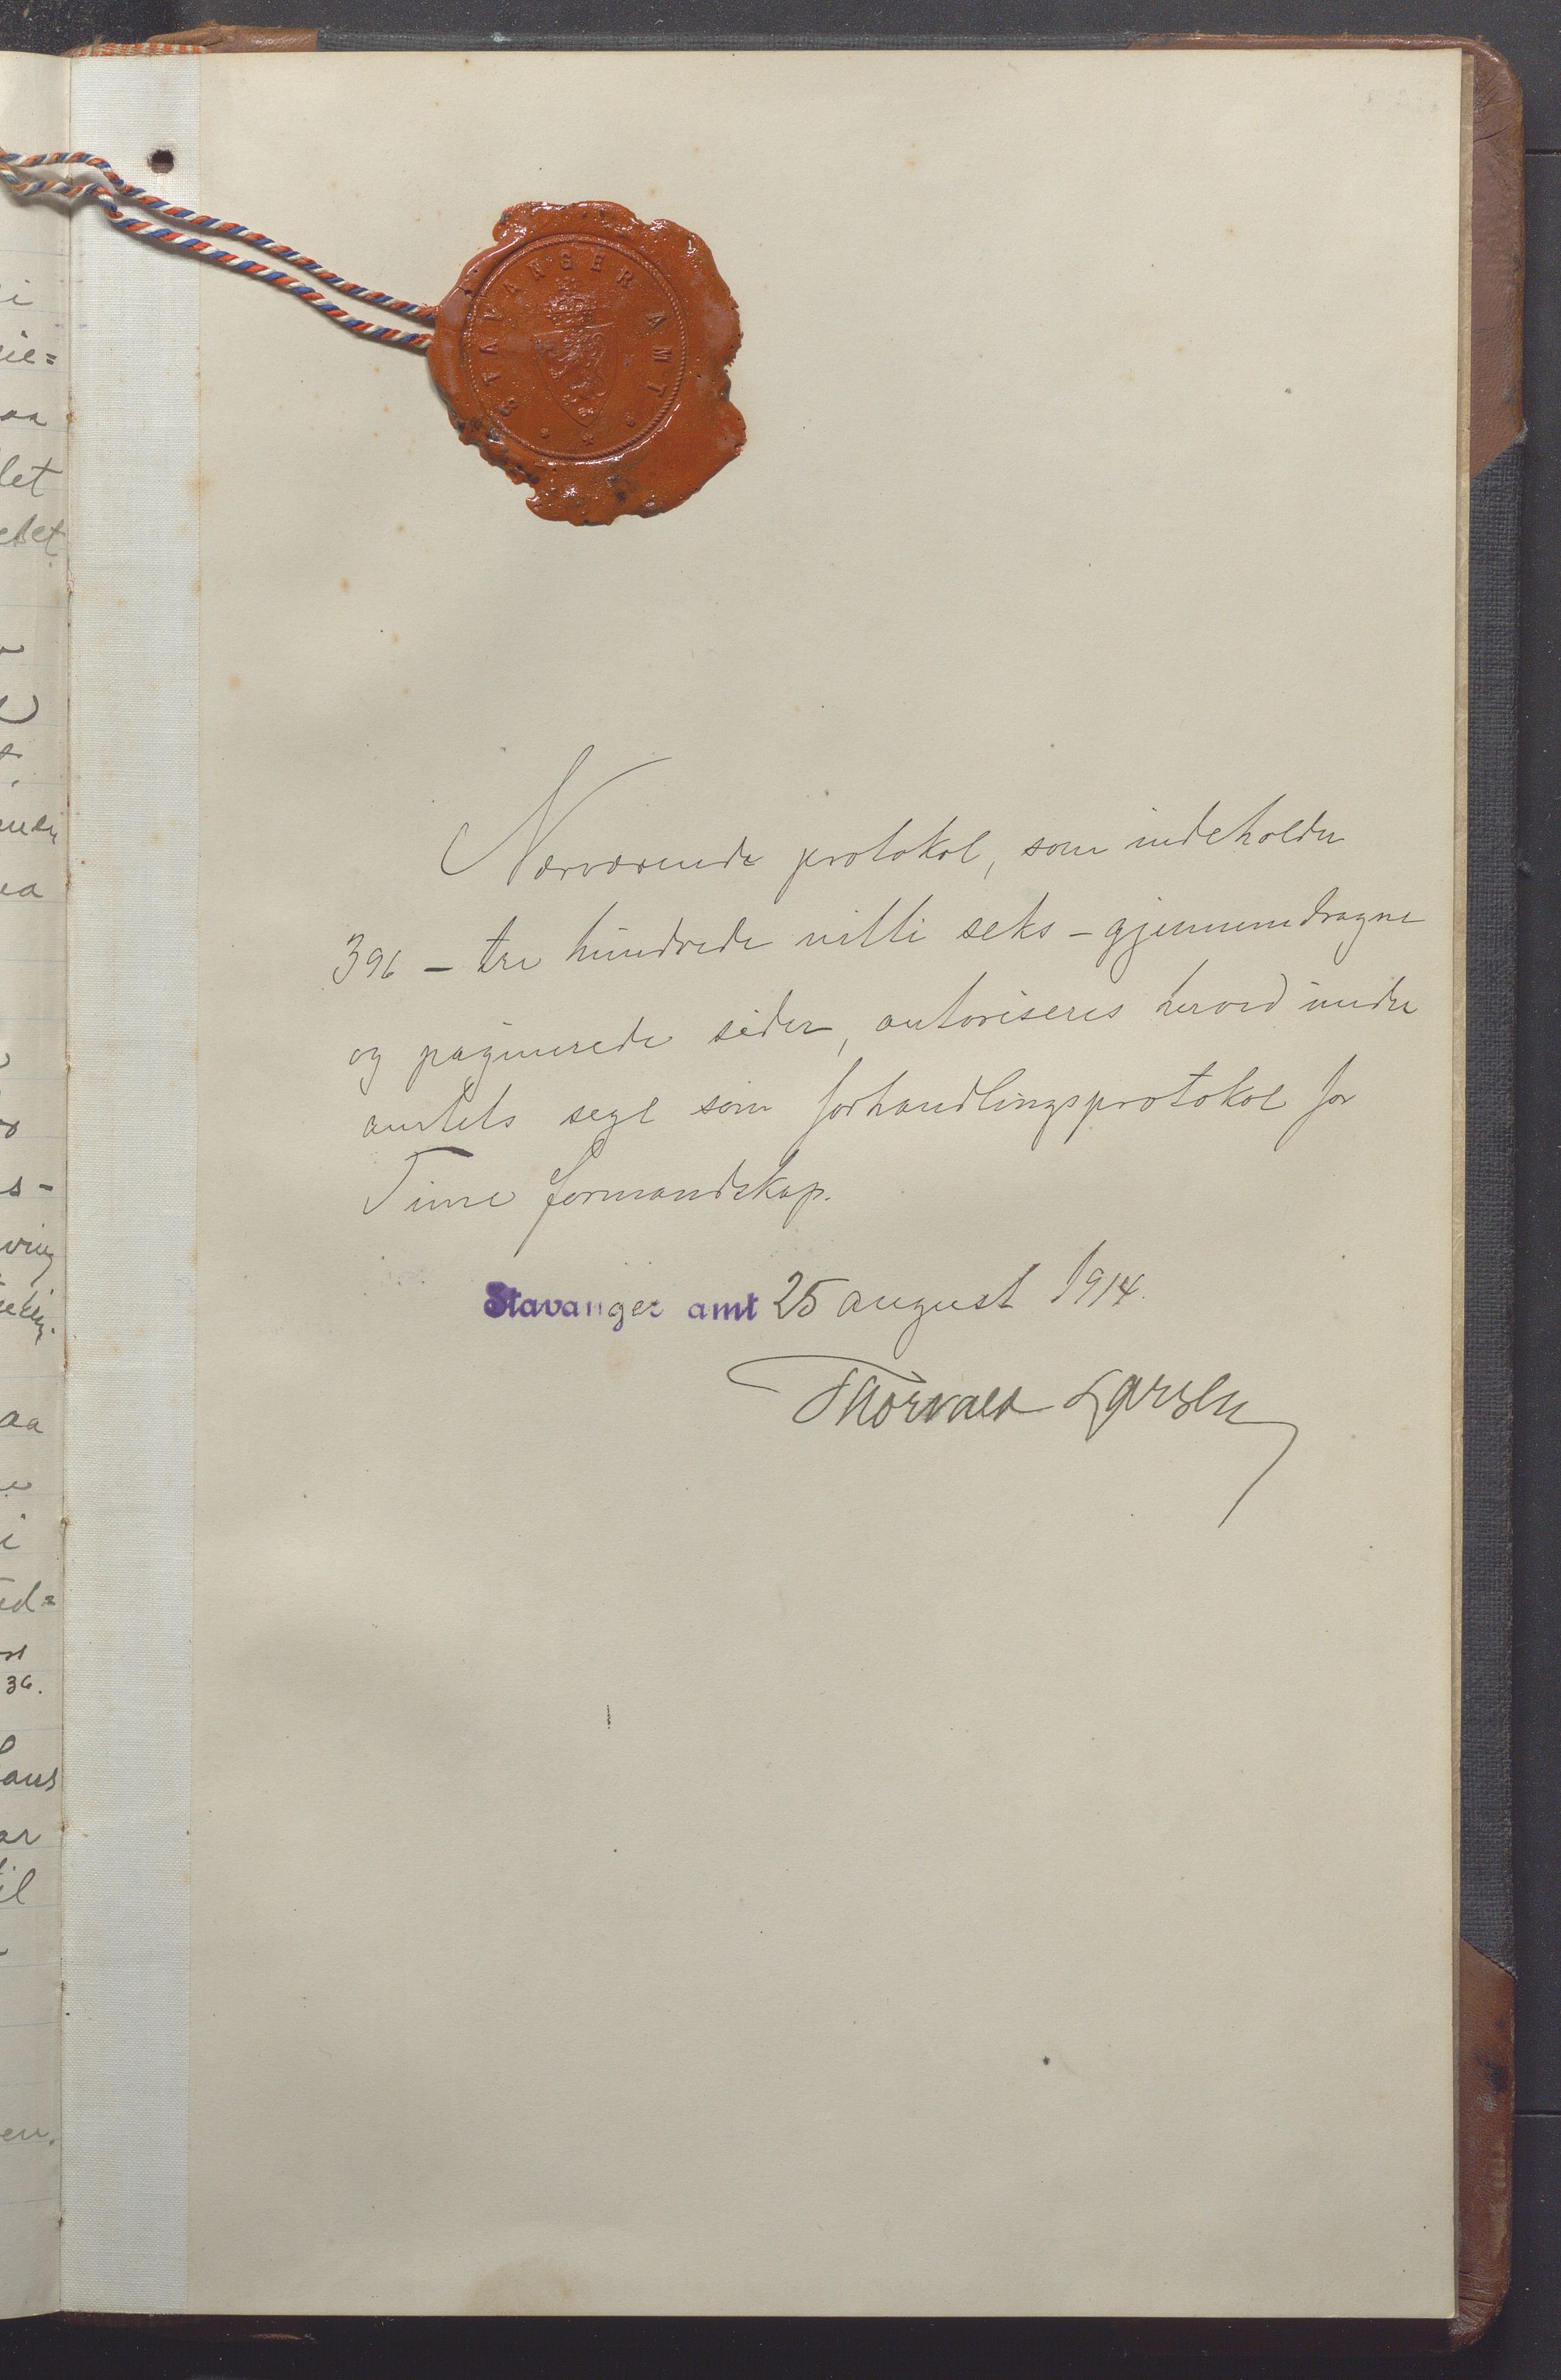 STAVANGER AMT
Nærværende protokol, som indeholder
396 – tre hundrede nitti seks – gjennemdragne
og paginerede sider, autoriseres herved under
amtets segl som forhandlingsprotokol for
Time formandskap.
Stavanger amt 25 august 1914.
Thorvald Larsen
i
aa
let
aa
i
36.
ar